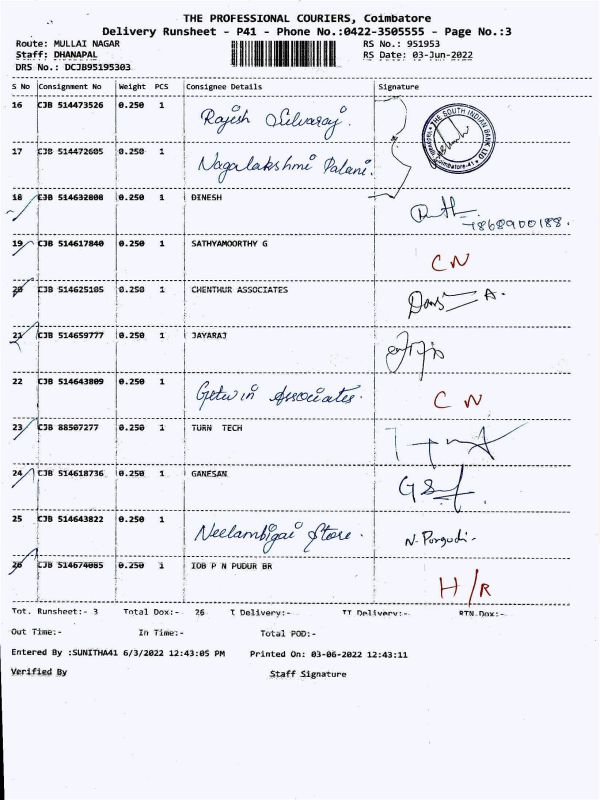 THE PROFESSIONAL COURIERS, Coimbatore
Delivery Runsheet - P41 - Phone No.:0422-3505555 - Page No.:3
Route: MULLAI NAGAR RS No.: 951953
Staff: DHANAPAL RS Date: 03-Jun-2022
DRS No.: DCJB95195303
S No Consignment No Weight PCS Consignee Details Signature
16 CJB 514473526 0.250 1 Rajesh Selvaraj.
THE SOUTH INDIAN BANK LTD
Coimbatore-41
17 CJB 514472605 0.250 1 Nagalakshmi Palani.
18 CJB 514632808 0.250 1 DINESH
7868900188.
19 CJB 514617840 0.250 1 SATHYAMOORTHY G
CN
20 CJB 514625105 0.250 1 CHENTHUR ASSOCIATES
21 CJB 514659777 0.250 1 JAYARAJ
22 CJB 514643809 0.250 1 Getwin Associates.
CN
23 CJB 88507277 0.250 1 TURN TECH
24 CJB 514618736 0.250 1 GANESAN
25 CJB 514643822 0.250 1 Neelambigai Store. N. Porgodi.
26 CJB 514674085 0.250 1 IOB P N PUDUR BR
H/R
Tot. Runsheet:- 3 Total Dox:- 26 I Delivery:- II Delivery:- RTN.Dox:-
Out Time:- In Time:- Total POD:-
Entered By :SUNITHA41 6/3/2022 12:43:05 PM Printed On: 03-06-2022 12:43:11
Verified By Staff Signature